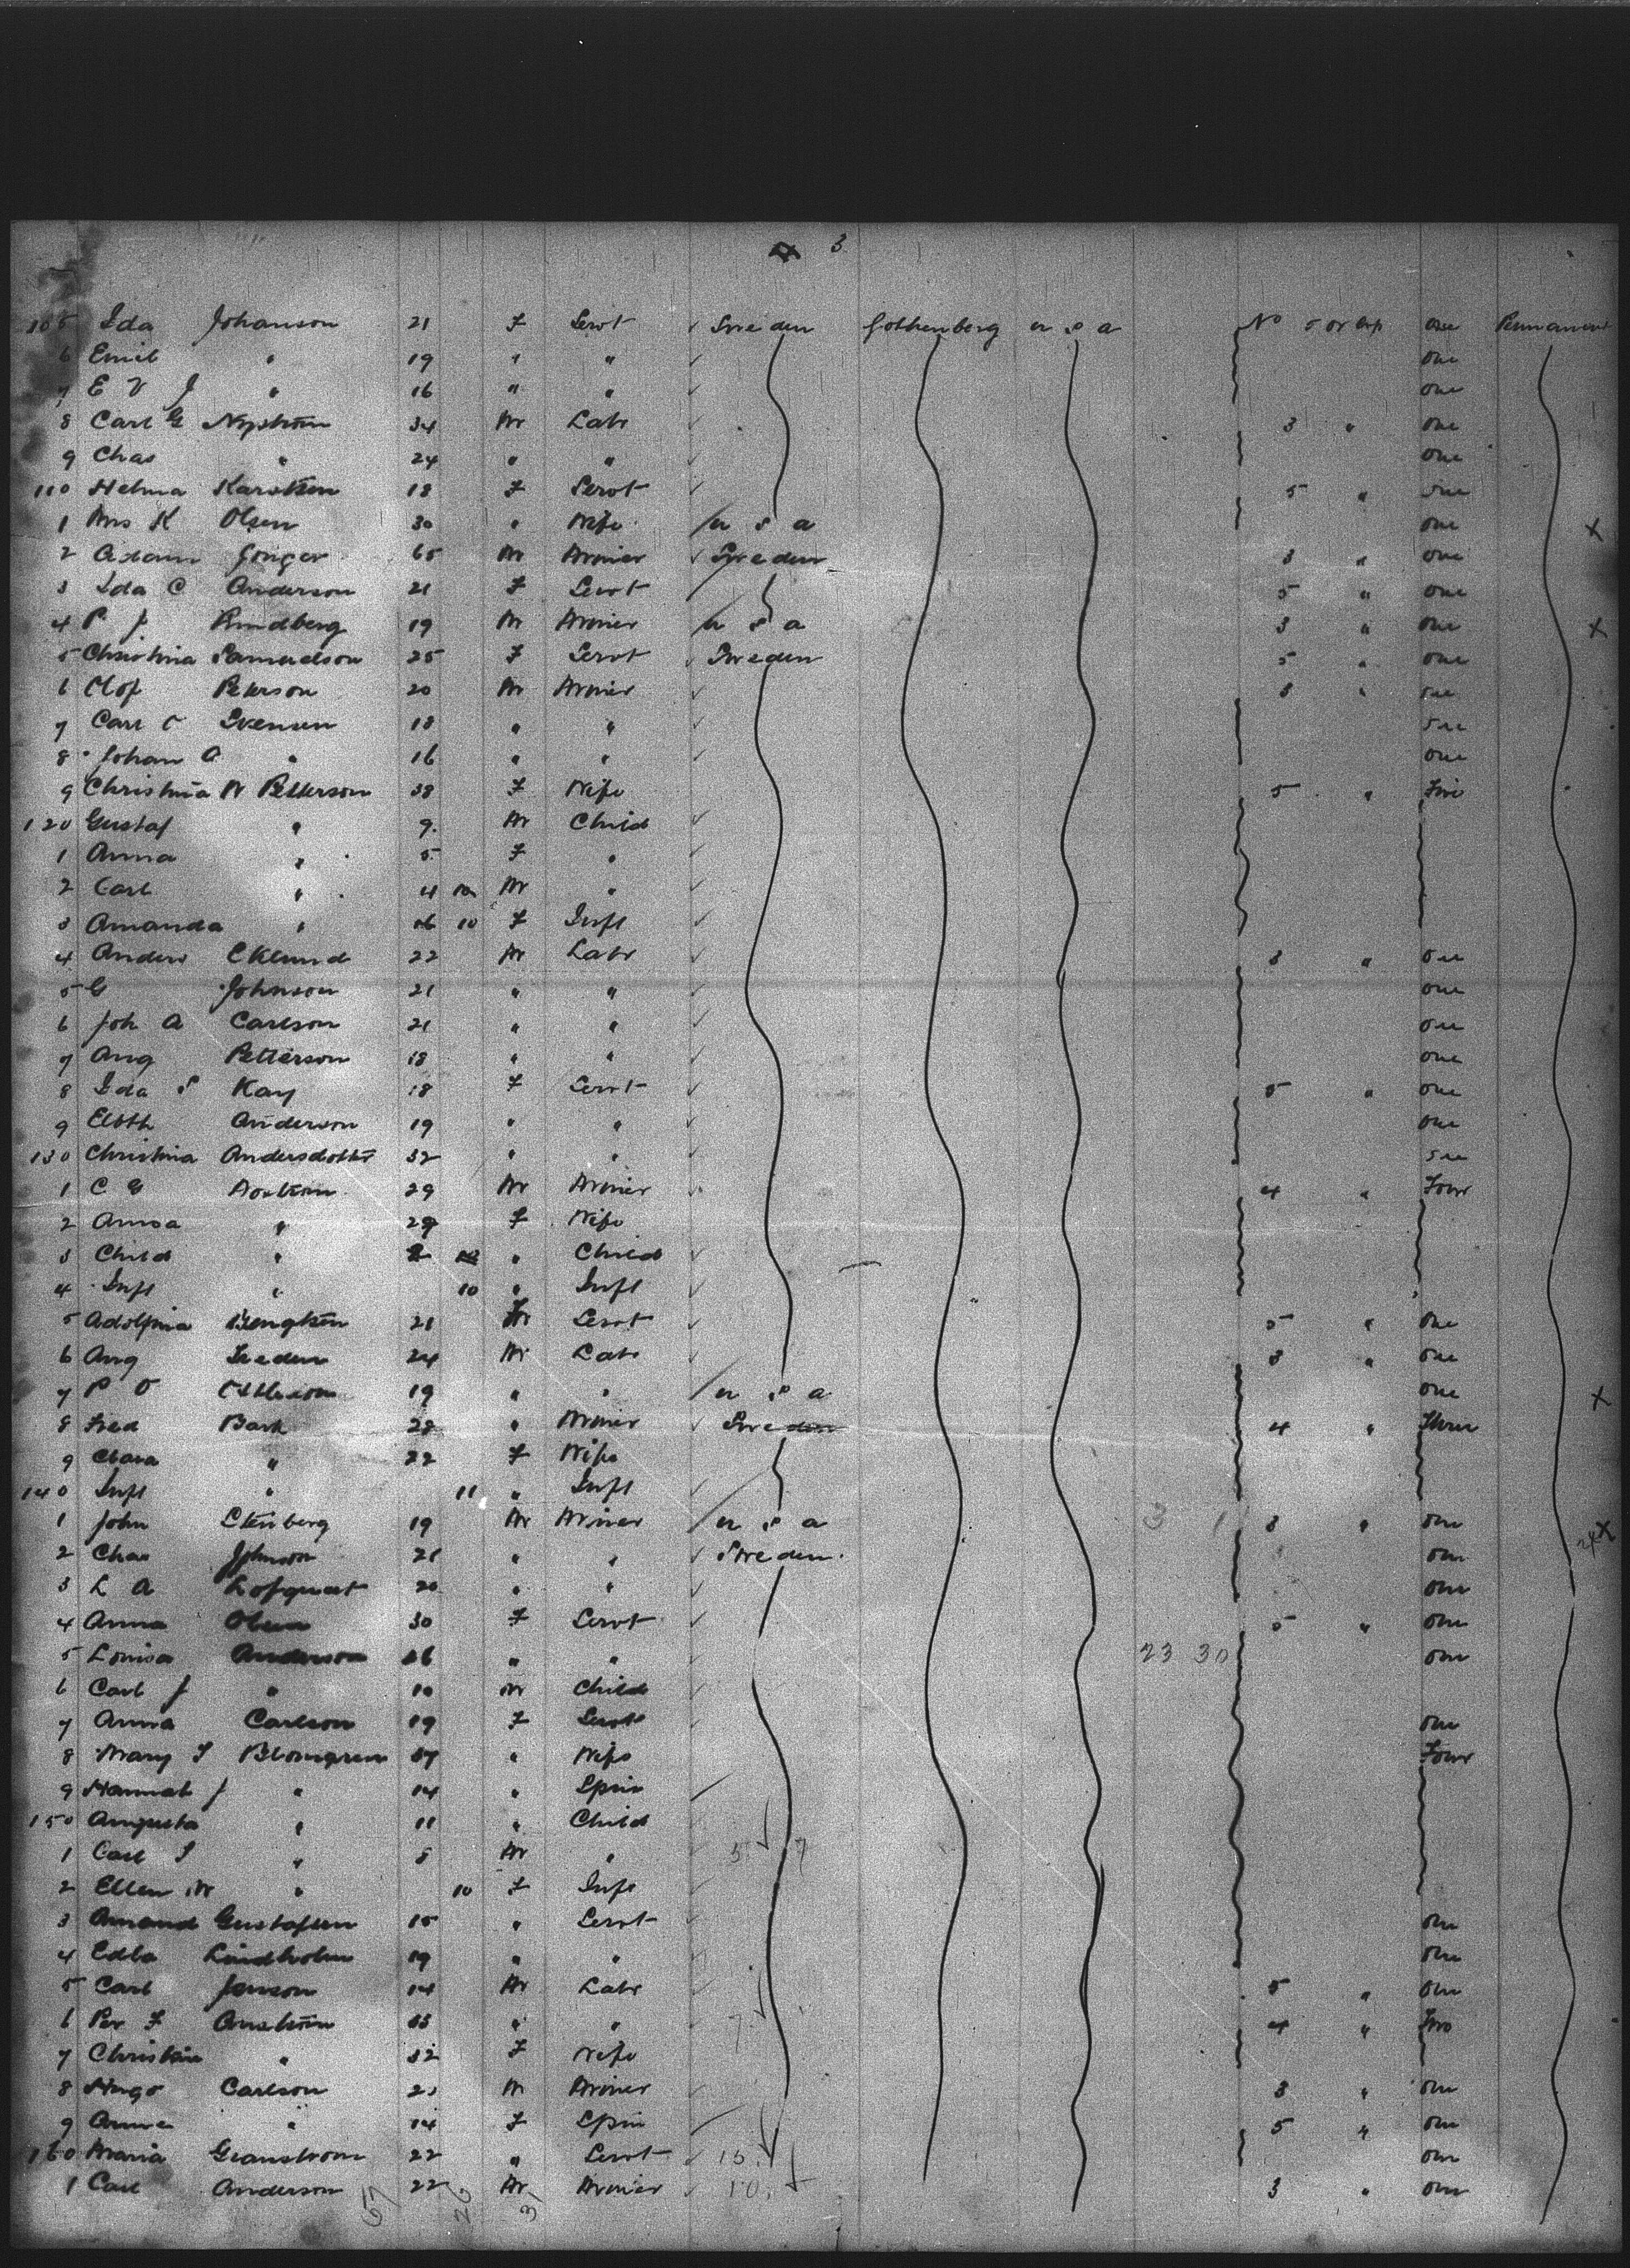 3
105 Ida Johanson 21 F Servt ✓ Sweden Gothenberg U S A No 5 one Permanent
6 Emil " 19 " " ✓ one
7 E V J " 16 " " ✓ one
8 Carl G Nyström 34 M Labr ✓ 3 " one
9 Chas " 24 " " ✓ one
110 Helma 18 F Servt ✓ 5 " one
1 Mrs K Olsen 30 " Wife / U S A one X
2 Adam 65 M Miner ✓ Sweden 3 " one
3 Ida C Anderson 21 F Servt / 5 " one
4 P J 19 M Miner / U S A 3 " one X
5 Christina Samuelson 25 F Servt ✓ Sweden 5 " one
6 Olof Peterson 20 M Miner ✓ 3 " one
7 Carl Svensen 18 " " ✓ one
8 Johan A " 16 " " ✓ one
9 Christina W Petterson 38 F Wife ✓ 5 " Five
120 Gustaf " 9 M Child ✓
1 Anna " 5 F " ✓
2 Carl " 4 M " ✓
3 Amanda " 10 F Inft ✓
4 Anders Eklund 22 M Labr ✓ 3 " one
5 G Johnson 21 " " ✓ one
6 Joh A Carlson 21 " " ✓ one
7 Aug Petterson 18 " " ✓ one
8 Ida S Kay 18 F Servt ✓ 5 " one
9 Elbth Anderson 19 " " one
130 Christina Andersdotter 32 " " one
1 C G 29 M Miner ✓ 4 " Four
2 Anna " 29 F Wife
3 Child " 2 " Child ✓
4 Inft " 10 " Inft ✓
5 Adolfina 21 Servt ✓ 5 " one
6 Aug 24 M Labr ✓ 3 " one
7 P O 19 " " / U S A one X
8 Fred Bark 28 " Miner ✓ Sweden 4 " Three
9 Clara " 22 F Wife
140 Inft " 11 " Inft ✓
1 John Stenberg 19 M Miner / U S A 3 1 3 " one X
2 Chas Johnson 21 " " ✓ Sweden one
3 L A Lofquist 20 " " ✓ one
4 Anna Olsen 30 F Servt ✓ 5 " one
5 Louisa Anderson 26 " " ✓ 23 30 one
6 Carl J " 10 M Child ✓
7 Anna Carlson 19 F Servt ✓ one
8 Mary S Blomgren 37 " Wife Four
9 Hannah J " 14 " Spin /
150 Augusta " 11 " Child ✓
1 Carl S " 8 M " ✓ 5 7
2 Ellen M " 10 F Inft ✓
3 Amand Gustafsen 15 " Servt ✓ one
4 Edla Lindholm 19 " " ✓ one
5 Carl Janson 14 M Labr ✓ 5 " one
6 Per F 33 " " 7 4 " Two
7 Christin " 32 F Wife
8 Hugo Carlson M Miner 3 " one
9 Anna " 14 F Spin / 5 " one
160 Maria Granstrom 22 " Servt ✓ 15 one
1 Carl Anderson 22 M Miner ✓ 10 3 " one
57 26 31